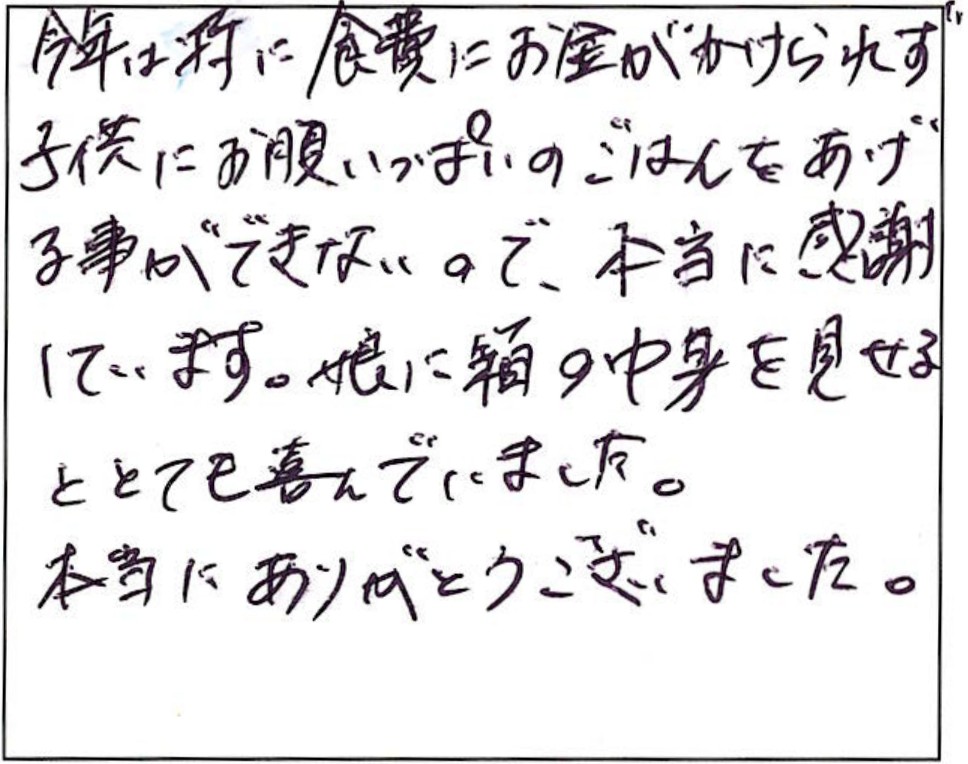 今年は特に食費にお金がかけられず
子供にお腹いっぱいのごはんをあげ
る事ができないので、本当に感謝
しています。娘に箱の中身を見せる
ととても喜んでいました。
本当にありがとうございました。